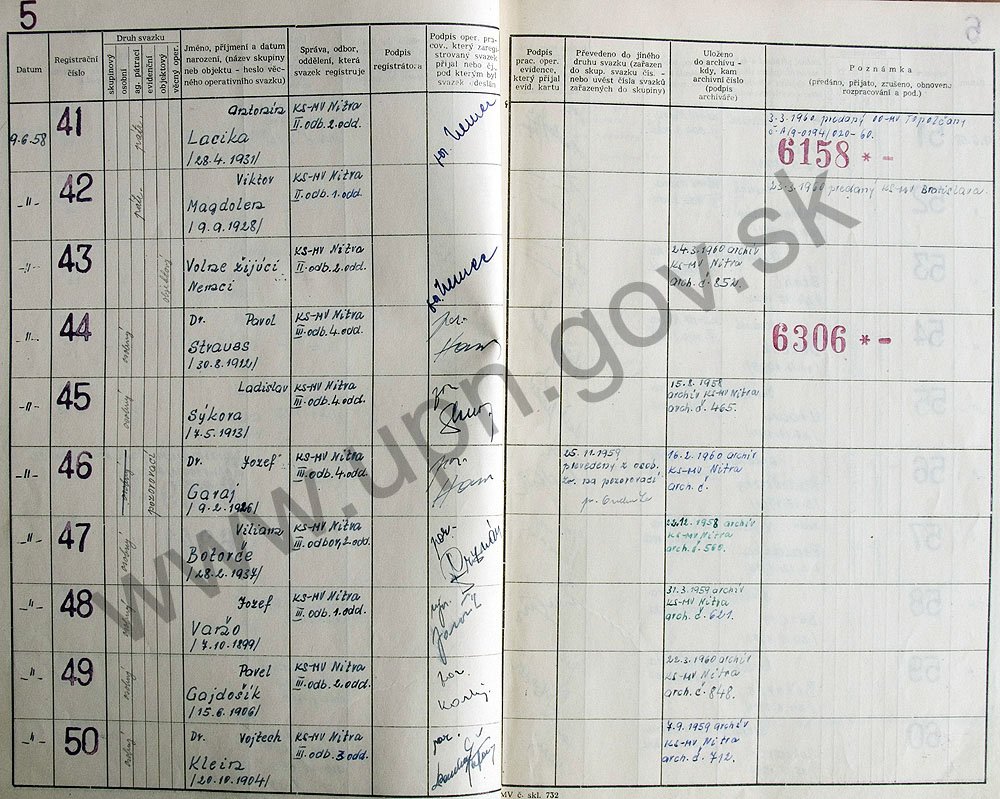 5
Datum
Registrační
číslo
Druh svazku
skupinový
osobní
ag. pátrací
evidenční
objektový
věcný oper.
Jméno, příjmení a datum
narození, (název skupiny
neb objektu - heslo věc-
ného operativního svazku)
Správa, odbor,
oddělení, která
svazek registruje
Podpis
registrátora
Podpis oper. pra-
cov., který zareg-
istrovaný svazek
přijal neb čj.,
pod kterým byl
svazek odeslán
Podpis
prac. oper.
evidence,
který přijal
evid. kartu
Převedeno do jiného
druhu svazku (zařazen
do skup. svazku čís. -
nebo uvést čísla svazků
zařazených do skupiny)
Uloženo
do archivu -
kdy, kam
archivní číslo
(podpis
archiváře)
Poznámka
(předáno, přijato, zrušeno, obnoveno
rozpracování a pod.)
9.6.58
41
Antonín
Lacika
/28.4.1931/
KS-MV Nitra
II.odb.2.odd.
por. Nemec
3.3.1960 predaný OO-MV Topoľčany
č. A/9-0194/020-60.
6158 * -
-"-
42
Viktor
Magdolen
/9.9.1928/
KS-MV Nitra
II.odb.1.odd.
23.3.1960 predaný KS-MV Bratislava.
-"-
43
objektový
Voľne žijúci
Nemci
KS-MV Nitra
II.odb.2.odd.
por. Nemec
24.3.1960 archív
KS-MV Nitra
arch.č. 852.
-"-
44
osobný
Dr. Pavol
Strauss
/30.8.1912/
KS-MV Nitra
III.odb.4.odd.
por.
6306 * -
-"-
45
osobný
Ladislav
Sýkora
/7.5.1913/
KS-MV Nitra
III.odb.4.odd.
por.
15.8.1958
archív KS-MV Nitra
arch.č. 465.
-"-
46
osobný
pozorovací
Dr. Jozef
Garaj
/9.2.1926/
KS-MV Nitra
III.odb.4.odd.
por.
25.11.1959
prevedený z osob.
zv. na pozorovací
16.2.1960 archív
KS-MV Nitra
arch.č.
-"-
47
osobný
Viliam
Botorče
/28.2.1937/
KS-MV Nitra
III.odbor,2.odd.
por.
22.12.1958 archív
KS-MV Nitra
arch.č. 560.
-"-
48
osobný
Jozef
Varžo
/7.10.1899/
KS-MV Nitra
III.odb.1.odd.
31.3.1959 archív
KS-MV Nitra
arch.č. 621.
-"-
49
osobný
Pavel
Gajdošík
/15.6.1906/
KS-MV Nitra
III.odb.2.odd.
por.
22.3.1960 archív
KS-MV Nitra
arch.č. 848.
-"-
50
osobný
Dr. Vojtech
Klein
/20.10.1904/
KS-MV Nitra
III.odb.3.odd.
por.
7.9.1959 archív
KS-MV Nitra
arch.č. 712.
MV č. skl. 732
www.upn.gov.sk